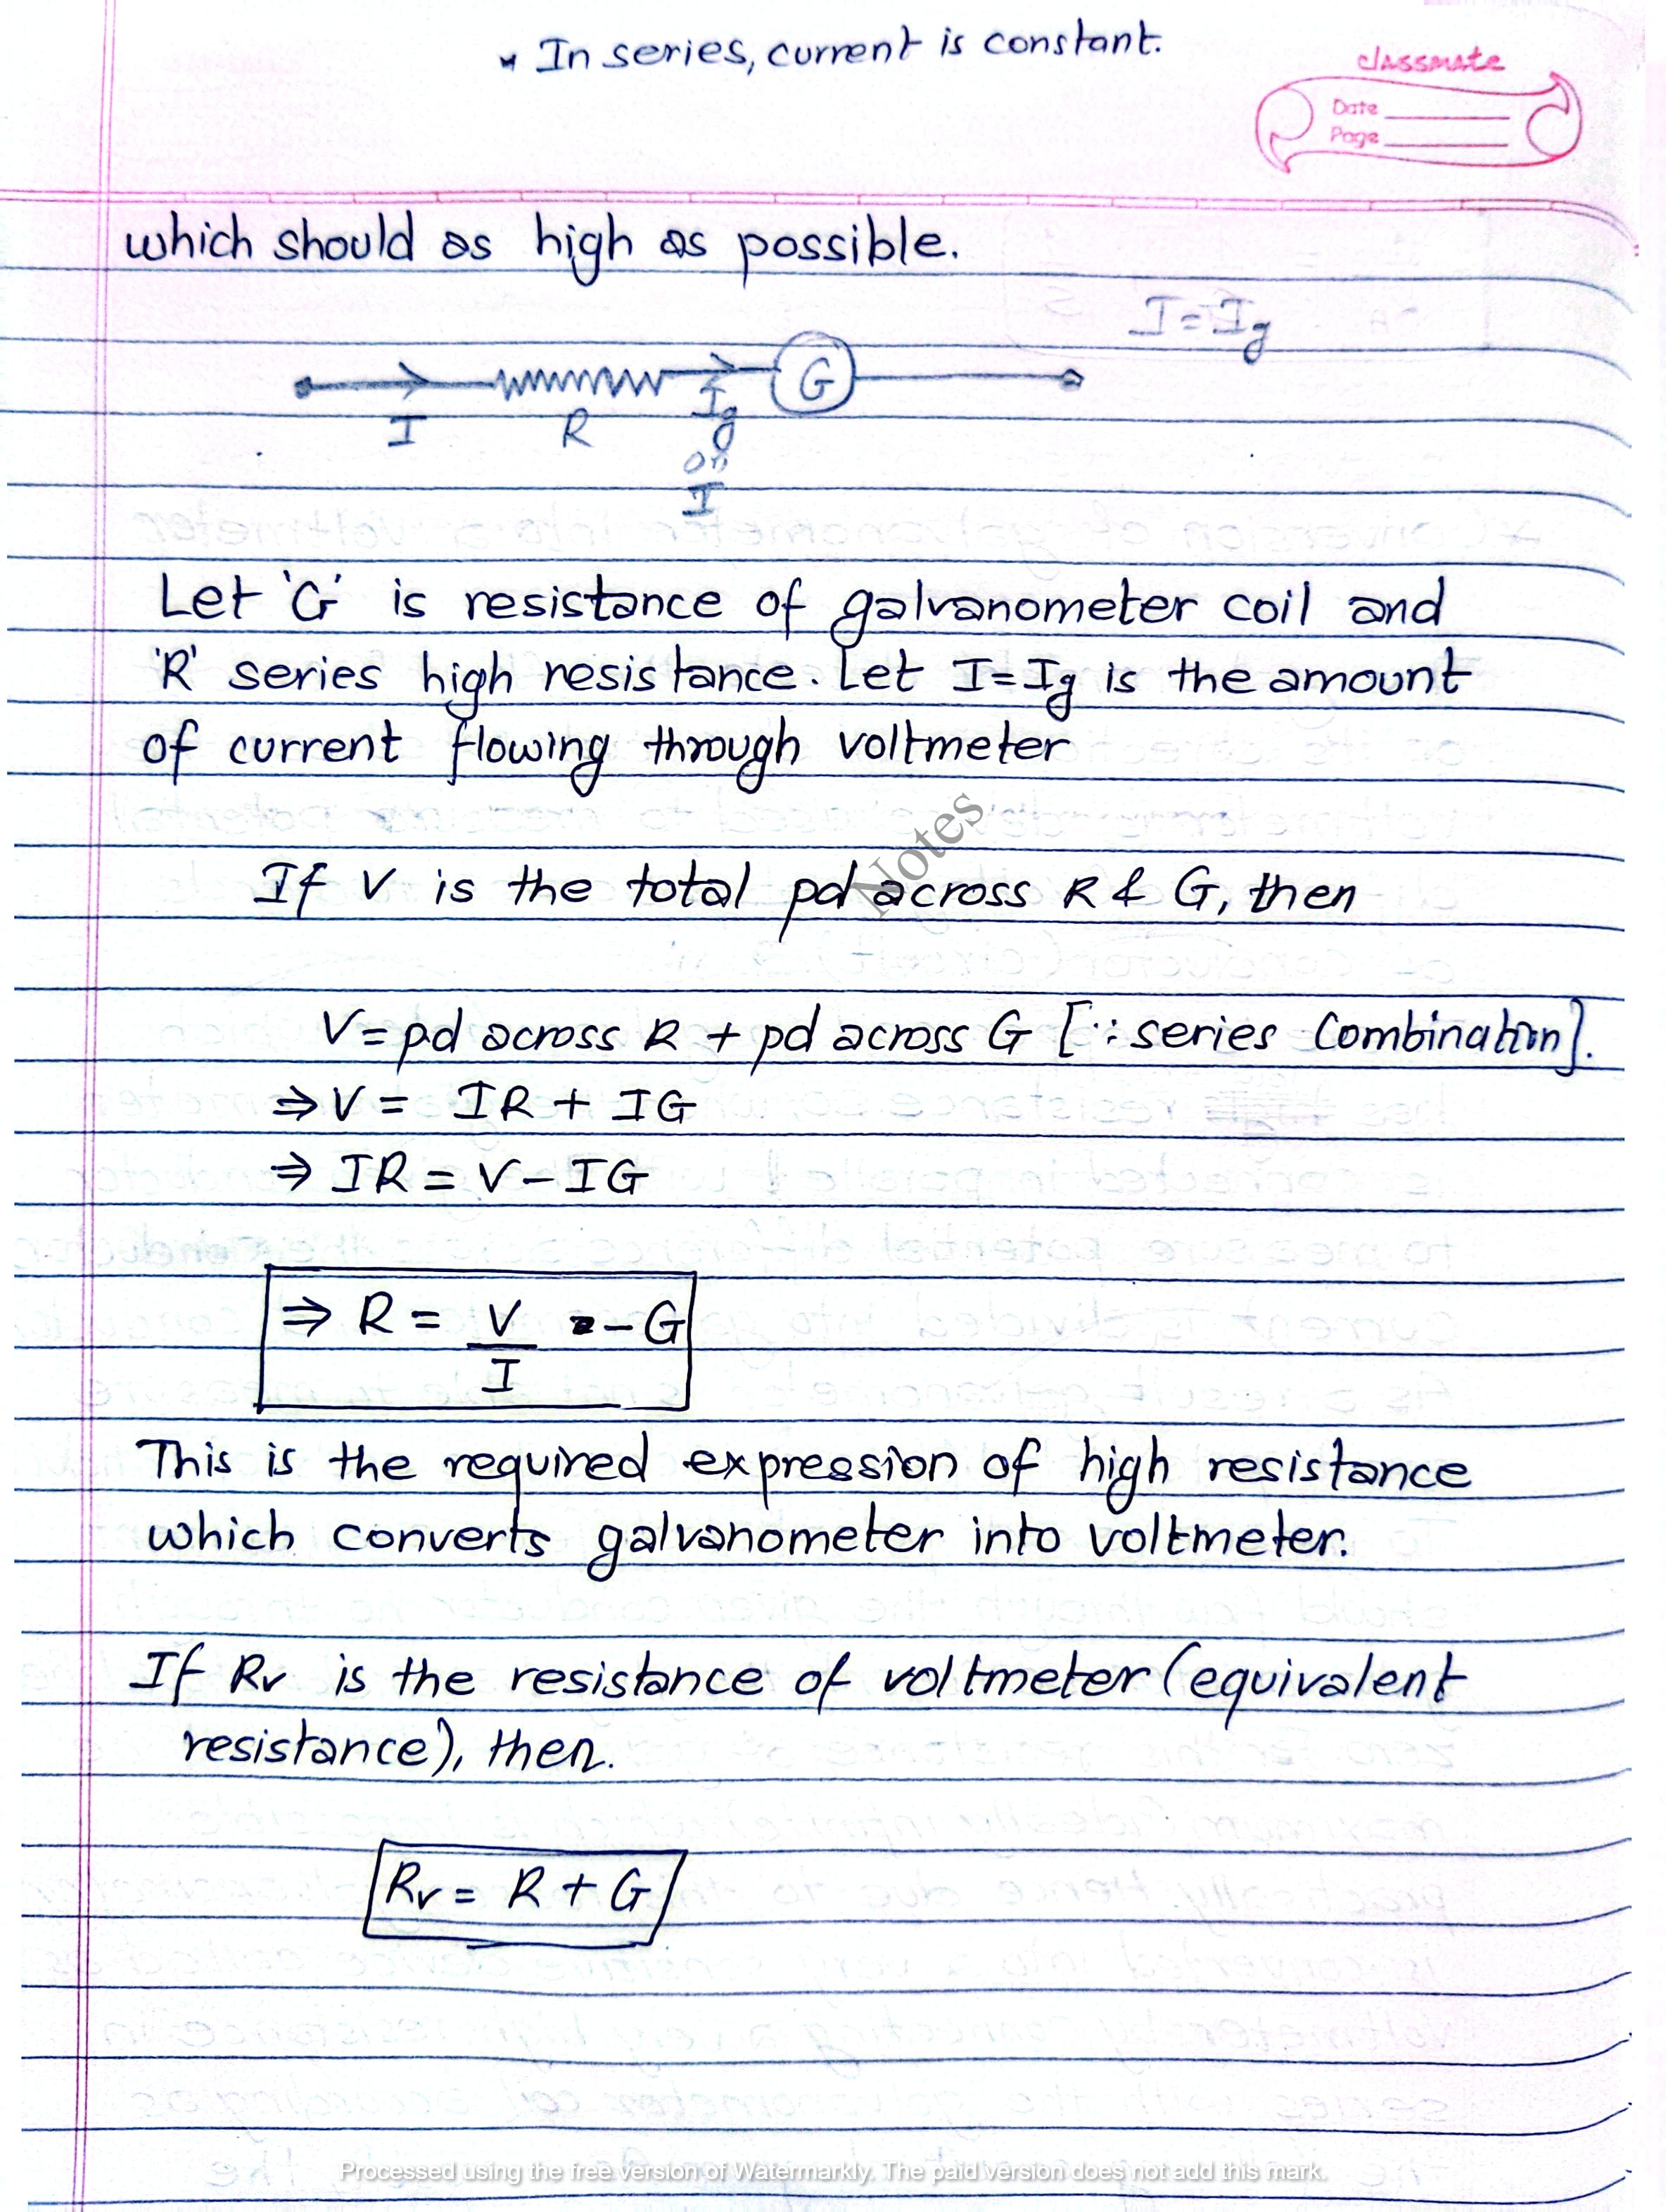 * In series, current is constant.
classmate
Date
Page
which should as high as possible.
I = Ig
G
I
R
Ig
or
I
Let 'G' is resistance of galvanometer coil and
'R' series high resistance. Let I=Ig is the amount
of current flowing through voltmeter
Notes
If V is the total pd across R & G, then
V = pd across R + pd across G [∵ series Combination].
⇒ V = IR + IG
⇒ IR = V - IG
⇒ R = V/I - G
This is the required expression of high resistance
which converts galvanometer into voltmeter.
If Rv is the resistance of voltmeter (equivalent
resistance), then.
Rv = R + G
Processed using the free version of Watermarkly. The paid version does not add this mark.